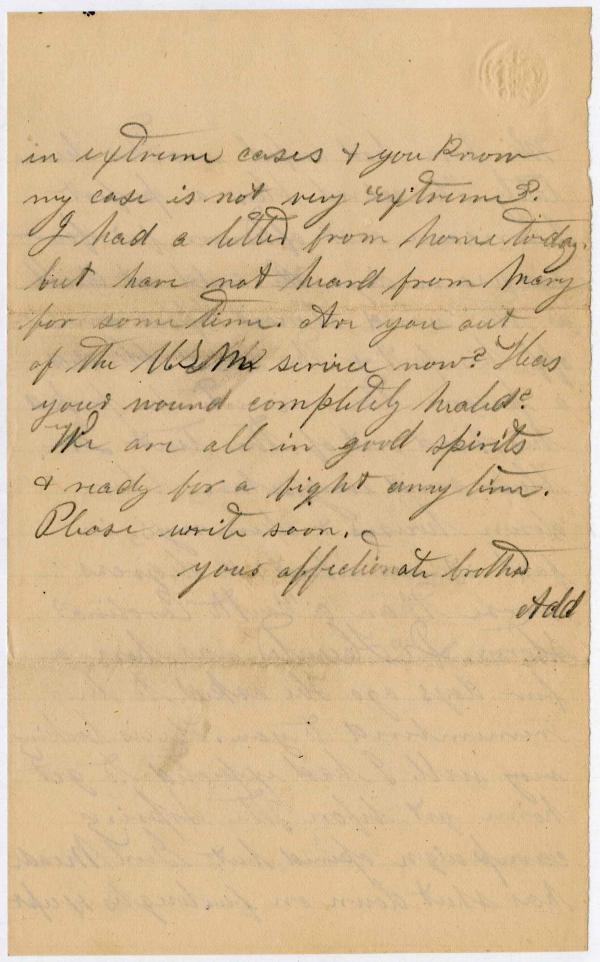 in extreme cases & you know
my case is not very extreme.
I had a letter from home today.
but have not heard from Mary
for some time. Are you out
of the service now? Has
your wound completely healed?
We are all in good spirits
& ready for a fight any time.
Please write soon.
your affectionate brother
Add